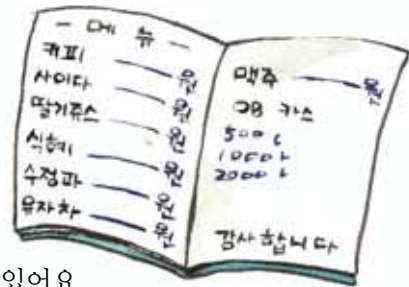 - 메 뉴 -
커피 ――― 원
사이다 ――― 원
딸기쥬스 ――― 원
식혜 ――― 원
수정과 ――― 원
유자차 ――― 원
맥주 ――― 원
OB 카스
500
1000
2000
감사합니다
있어요